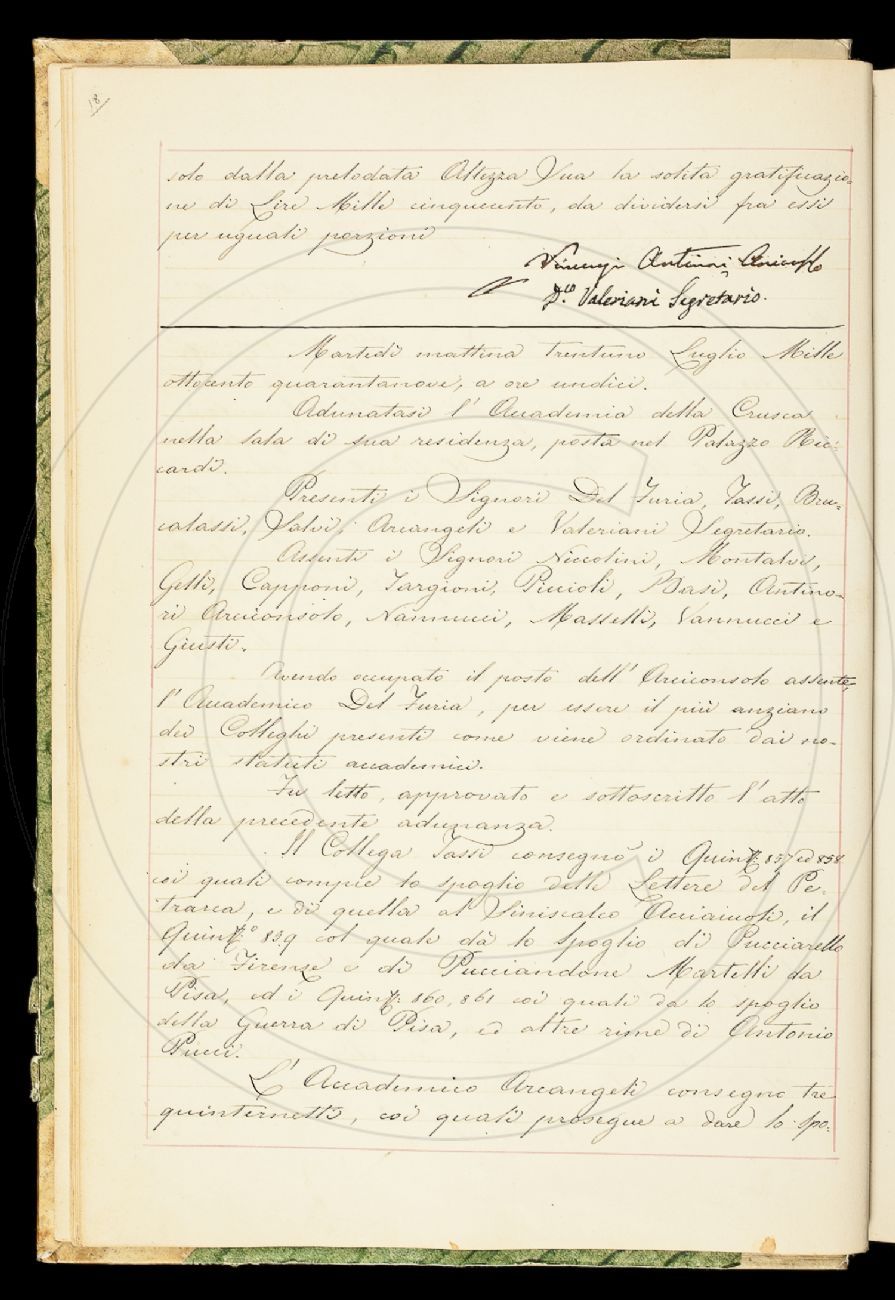 18
solo dalla prelodata Altezza Sua la solita gratificazio=
ne di Lire Mille cinquecento, da dividersi fra essi
per uguali porzioni
Antinori
D.co Valeriani Segretario.
Martedì mattina trentuno Luglio Mille
ottocento quarantanove, a ore undici.
Adunatasi l'Accademia della Crusca
nella sala di sua residenza, posta nel Palazzo Ric=
cardi.
Presenti i Signori Del Furia, Tassi, Bru=
calassi, Salvi, Arcangeli e Valeriani Segretario.
Assenti i Signori Niccolini, Montalvi,
Gelli, Capponi, Targioni, Puccioli, Basi, Antino=
ri Arciconsolo, Nannucci, Masselli, Vannucci e
Giusti.
Avendo occupato il posto dell'Arciconsolo assente,
l'Accademico Del Furia, per essere il più anziano
dei Colleghi presenti come viene ordinato dai no=
stri statuti accademici.
Fu letto, approvato e sottoscritto l'atto
della precedente adunanza.
Il Collega Tassi consegnò i Quint: 857 ed 858
coi quali compie lo spoglio delle Lettere del Pe=
trarca, e di quella al Siniscalco Acciaiuoli, il
Quint:o 859 col quale dà lo spoglio di Pucciarello
da Firenze e di Pucciandone Martelli da
Pisa, ed i Quint: 860, 861 coi quali dà lo spoglio
della Guerra di Pisa, ed altre rime di Antonio
Pucci.
L'Accademico Arcangeli consegnò tre
quinternetti, coi quali prosegue a dare lo spo=